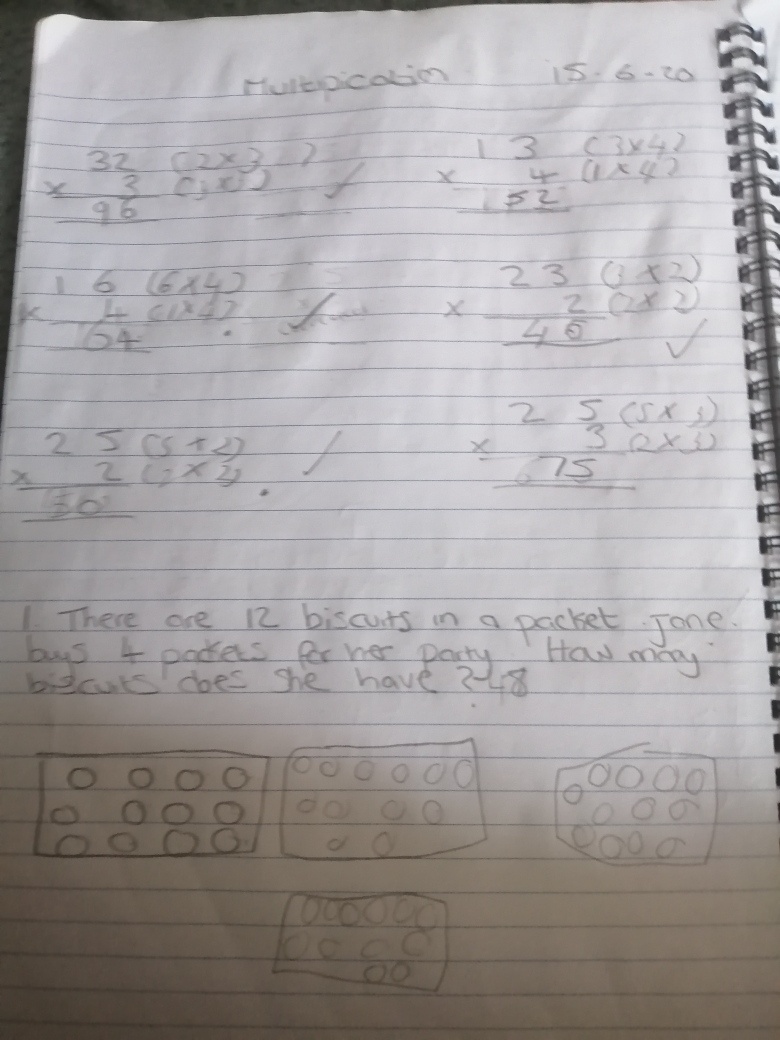 Multiplication 15-6-20
32 (2x3)
x 3 (3x3)
96
13 (3x4)
x 4 (1x4)
52
16 (6x4)
x 4 (1x4)
64
23 (3x2)
x 2 (2x2)
46
25 (5+2)
x 2 (2x2)
50
25 (5x3)
x 3 (2x3)
75
1. There are 12 biscuits in a packet. Jane
buys 4 packets for her party. How many
biscuits does she have? 48